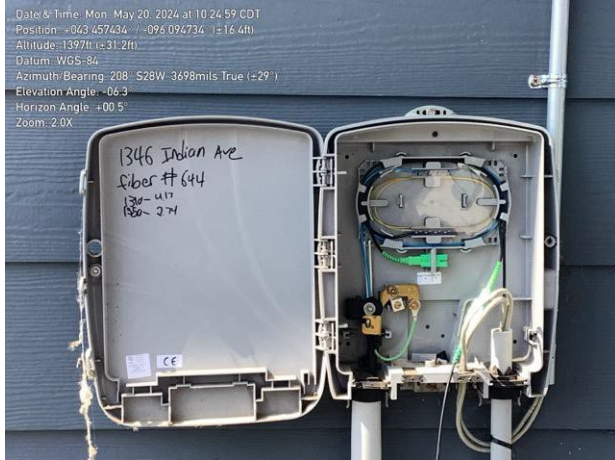 Date & Time: Mon, May 20, 2024 at 10:24:59 CDT
Position: +043.457434° / -096.094734° (±16.4ft)
Altitude: 1397ft (±31.2ft)
Datum: WGS-84
Azimuth/Bearing: 208° S28W 3698mils True (±29°)
Elevation Angle: -06.3°
Horizon Angle: +00.5°
Zoom: 2.0X
1346 Indian Ave
fiber # 644
CE